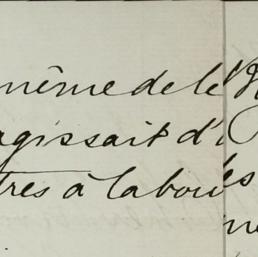 même de le
agissait d'
tres à la bou
es